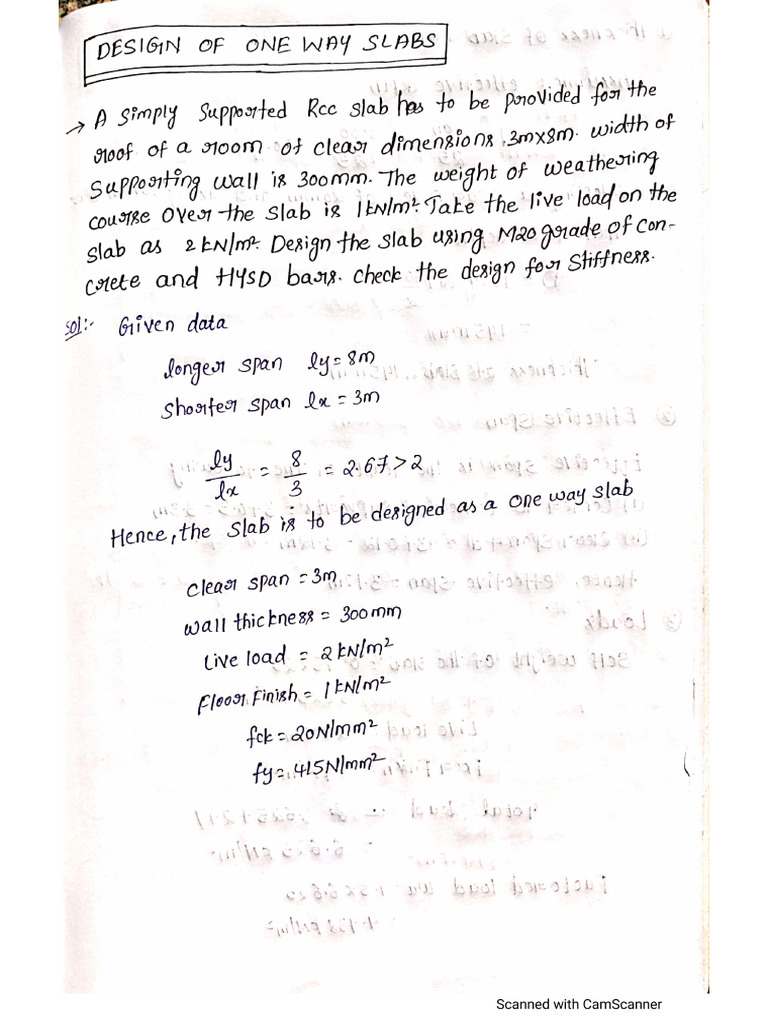 DESIGN OF ONE WAY SLABS
→ A Simply Supported Rcc slab has to be provided for the
roof of a room of clear dimensions 3mx8m. width of
Supporting wall is 300mm. The weight of weathering
course over the slab is 1kN/m². Take the live load on the
slab as 2kN/m². Design the slab using M20 grade of con-
crete and HYSD bars. check the design for stiffness.
Sol:- Given data
longer span ly = 8m
Shorter span lx = 3m
ly/lx = 8/3 = 2.67 > 2
Hence, the slab is to be designed as a one way slab
clear span = 3m
wall thickness = 300mm
Live load = 2kN/m²
Floor Finish = 1kN/m²
fck = 20N/mm²
fy = 415N/mm²
Scanned with CamScanner